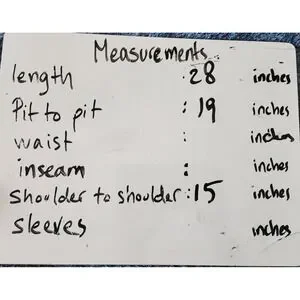 Measurements
length :28 inches
Pit to pit : 19 inches
waist : inches
inseam : inches
Shoulder to shoulder :15 inches
sleeves inches